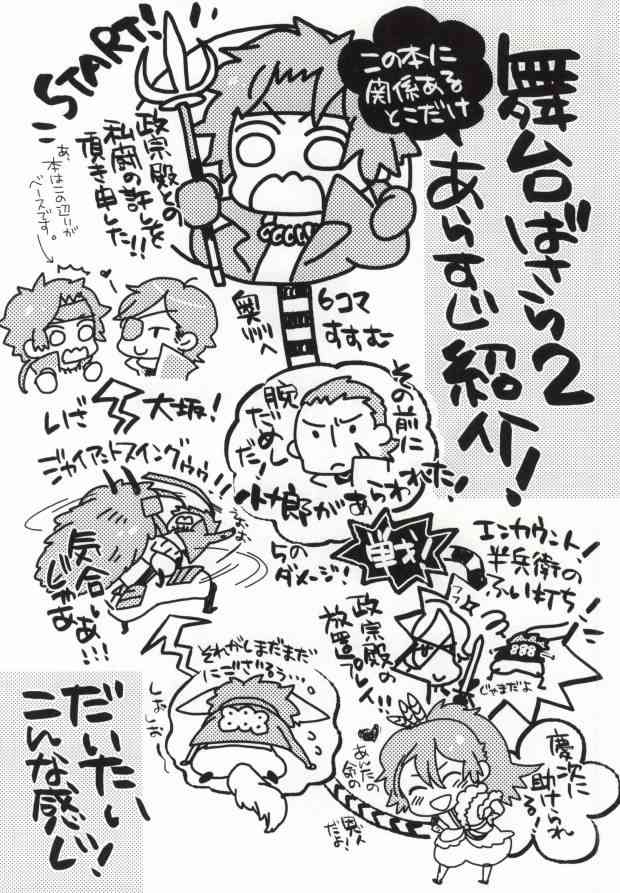 舞台ばさら2
あらすじ紹介!
この本に
関係ある
とこだけ
START!
政宗殿との
私闘の許しを
頂き申した!!
あ、
本はこの辺りが
ベースです。
6コマ
すすむ
奥州へ
その前に
腕
だめし
だ!
小十郎があらわれた!
いざ
大坂!
ジャイアントスイングゥゥ!!
気合じゃあ
あ!!!
らのダメージ!
戦!
エンカウント!
半兵衛の
ふい打ち!
じゃまだよ
政宗殿の
放置プレイ!!
それがしまだまだ
にござるうぅ…。
しお
しお
慶次に
助けられ
る!
だいたい
こんな感じ!